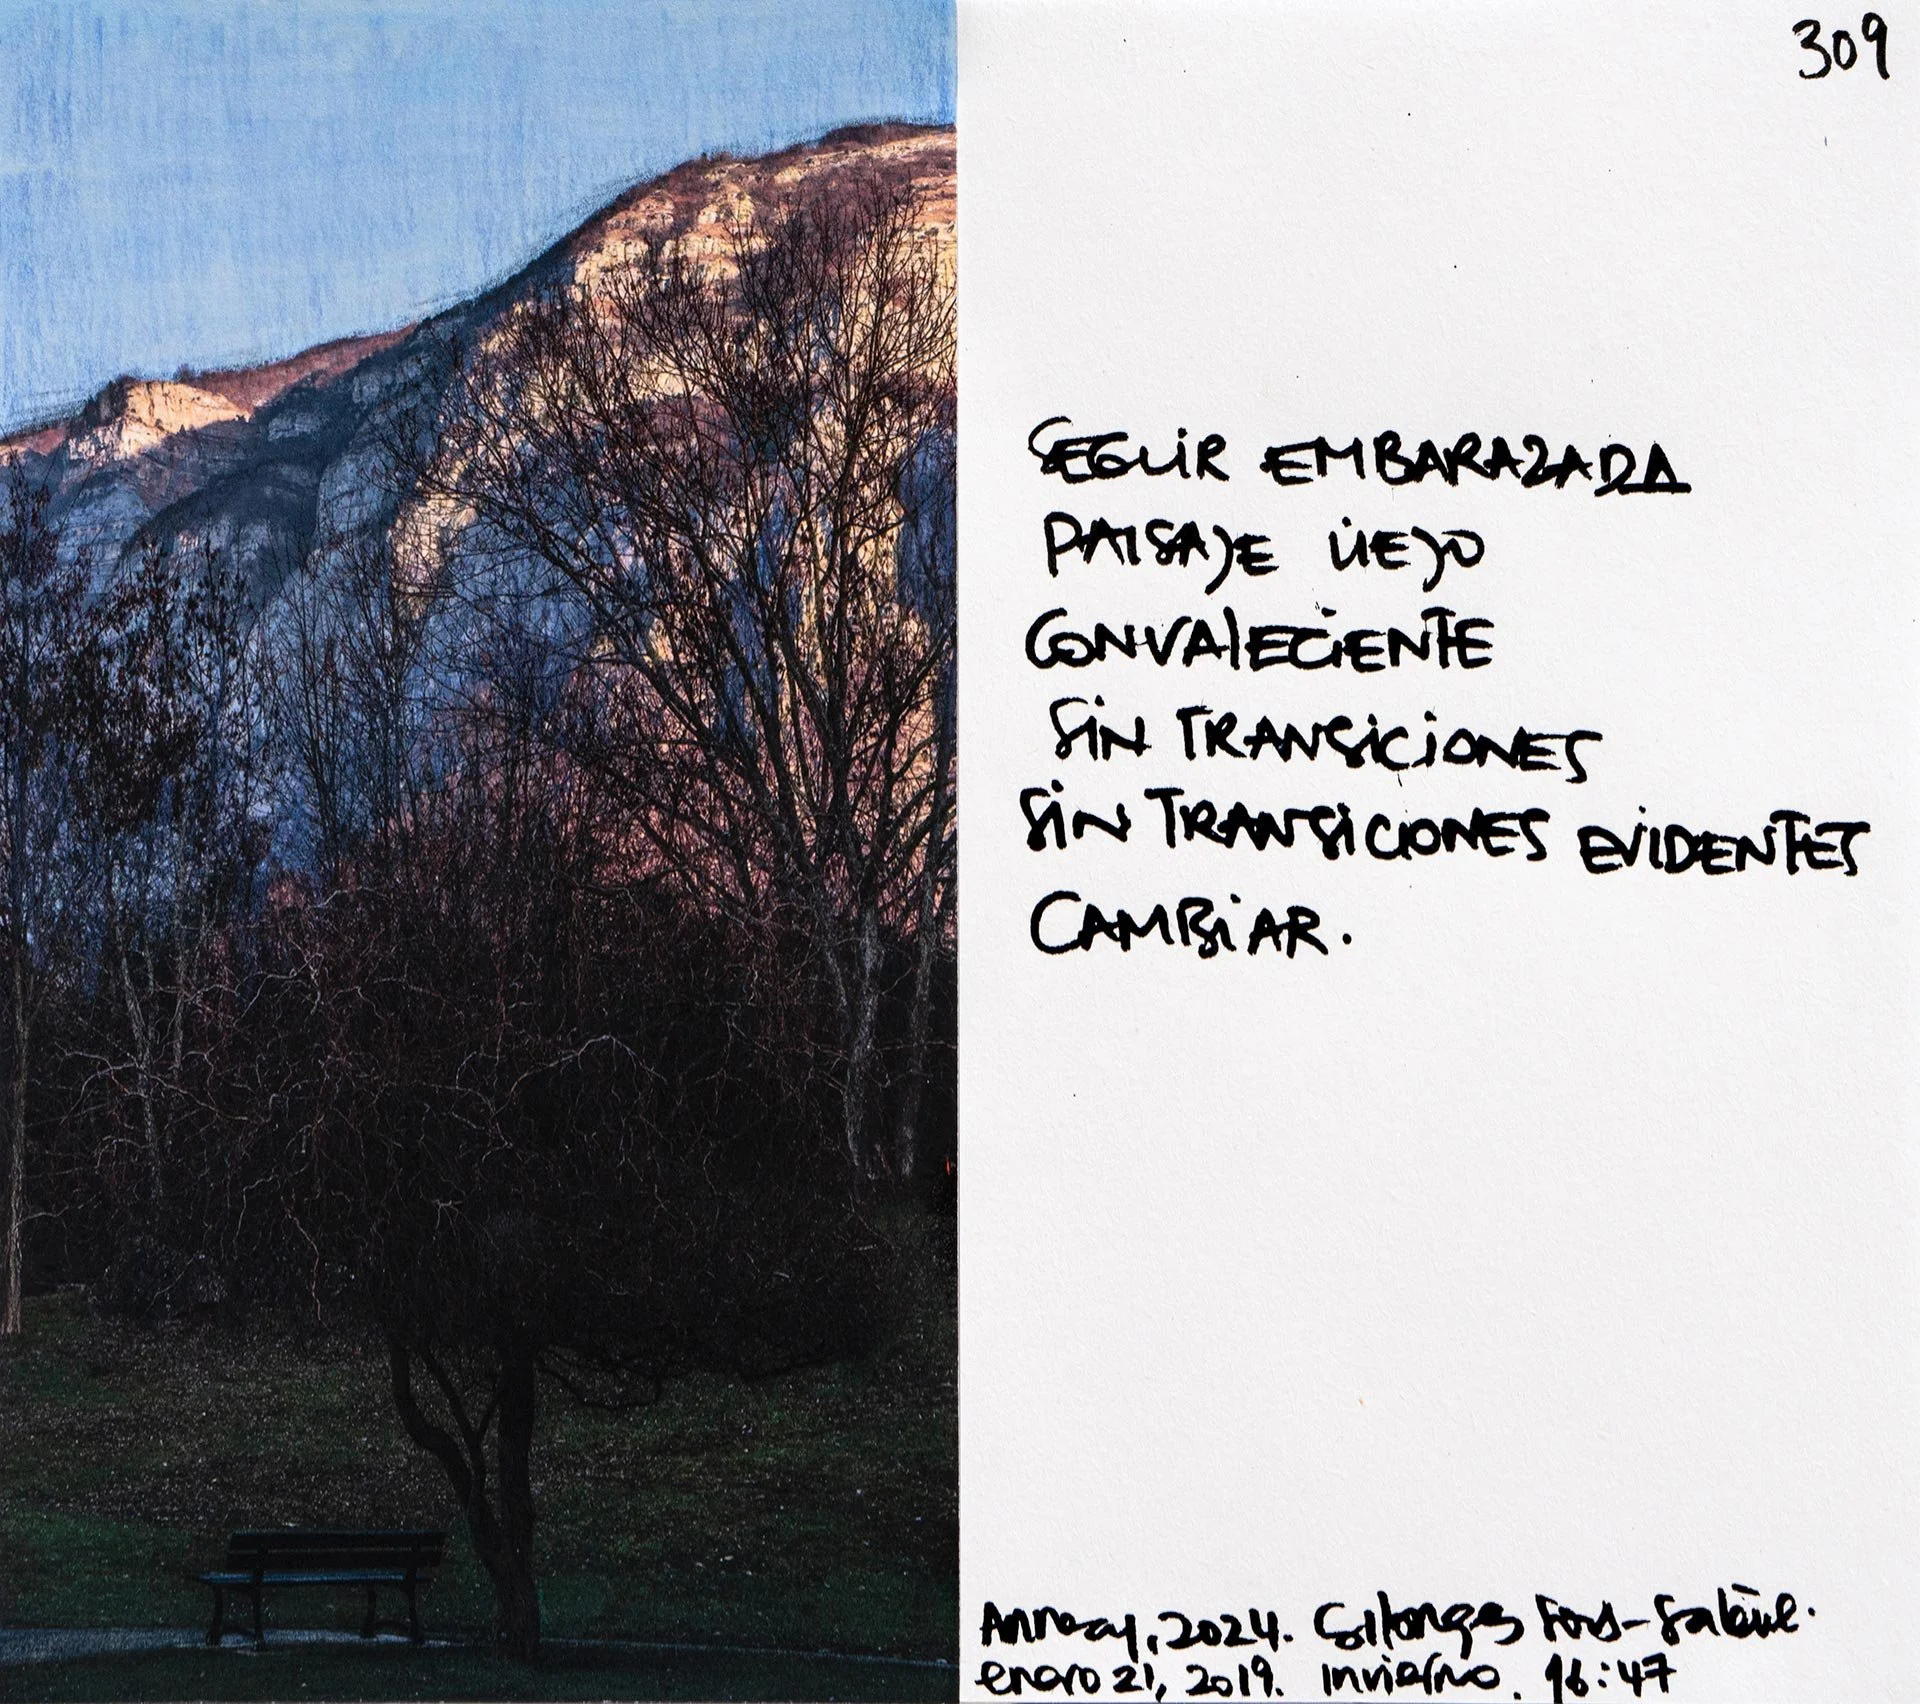 309
SEGUIR EMBARAZADA
PAISAJE VIEJO
CONVALECIENTE
SIN TRANSICIONES
SIN TRANSICIONES EVIDENTES
CAMBIAR.
Annecy, 2024. Collonges Sous-Salève.
enero 21, 2019. invierno. 16:47